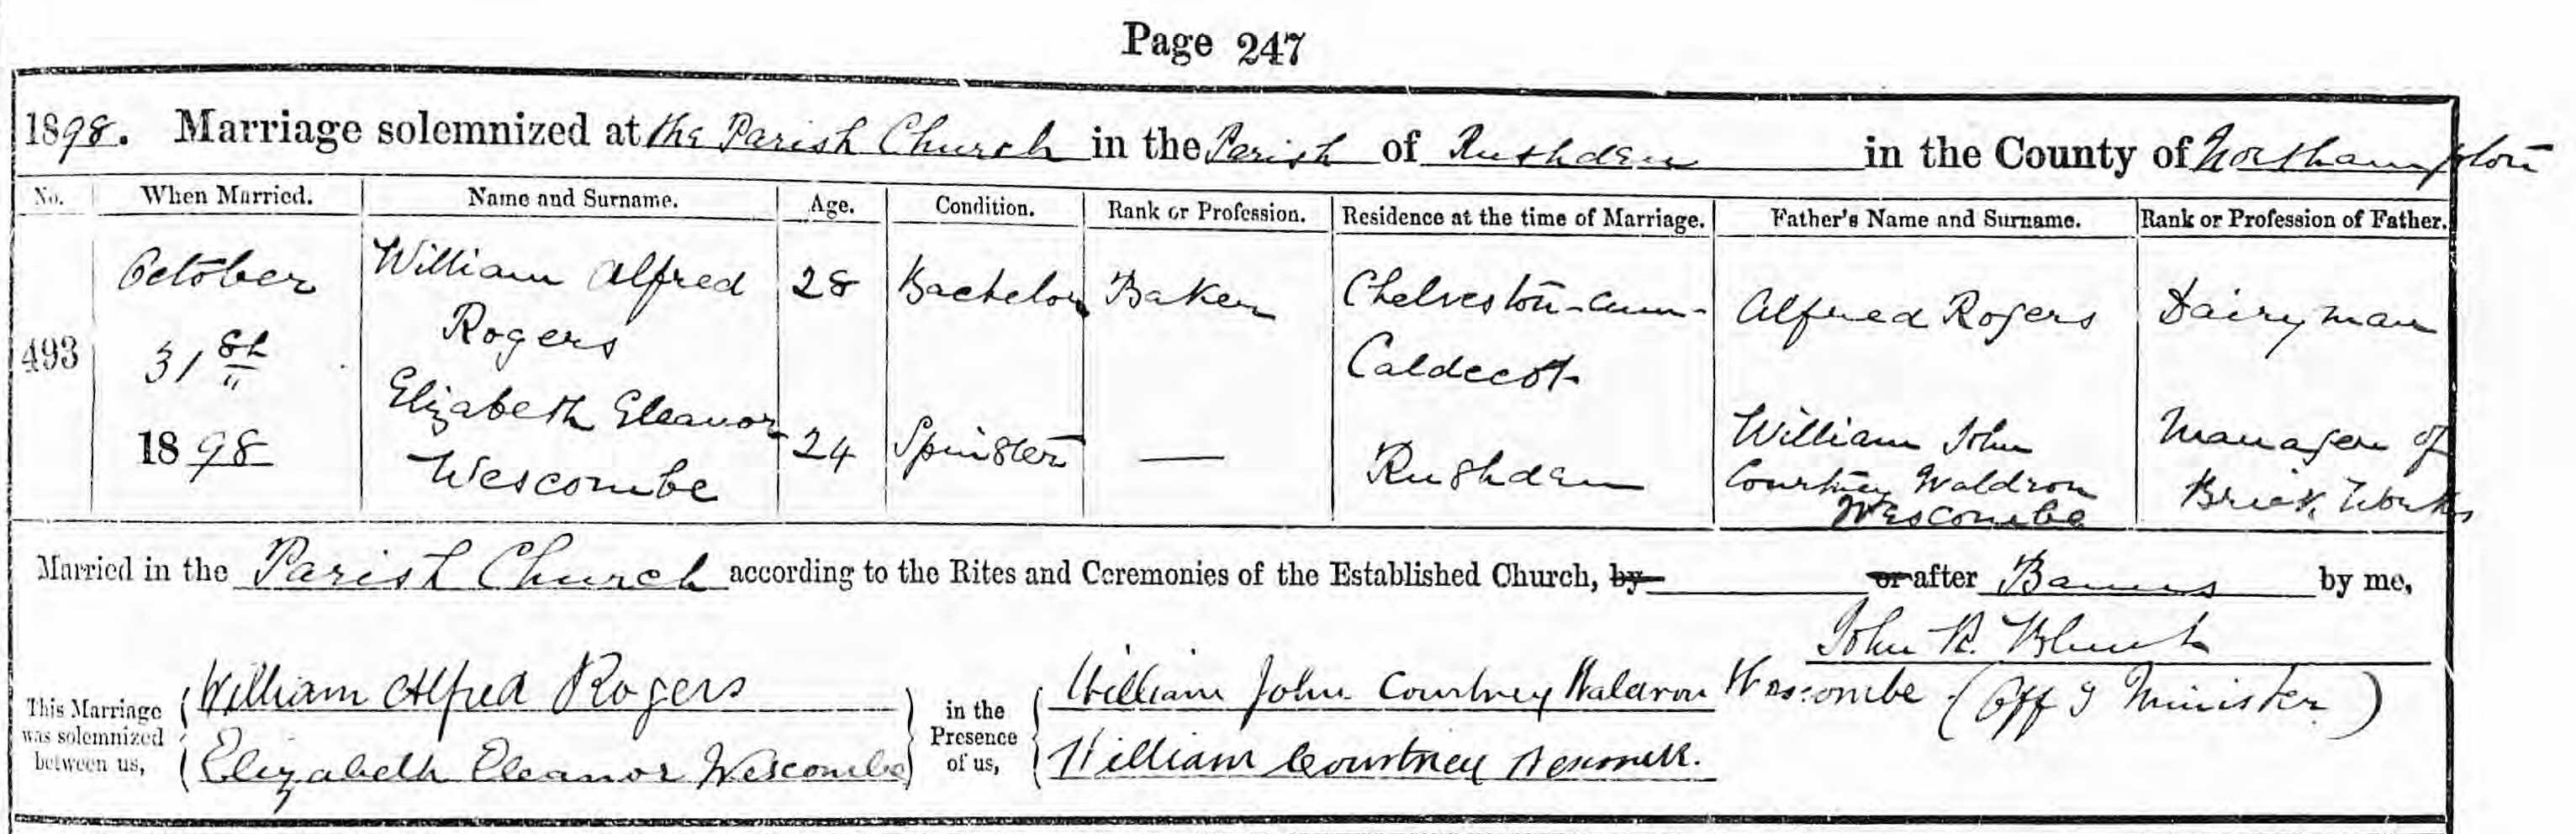 Page 247
1898. Marriage solemnized at the Parish Church in the Parish of Rushden in the County of Northampton
No. When Married. Name and Surname. Age. Condition. Rank or Profession. Residence at the time of Marriage. Father's Name and Surname. Rank or Profession of Father.
493
October
31st
1898
William Alfred
Rogers
28
Bachelor
Baker
Chelveston-cum-
Caldecot
Alfred Rogers
Dairyman
Elizabeth Eleanor
Wescombe
24
Spinster
—
Rushden
William John
Courtney Waldron
Wescombe
Manager of
Brick Works
Married in the Parish Church according to the Rites and Ceremonies of the Established Church, by or after Banns by me,
John R. Blunt
(Off g Minister)
This Marriage
was solemnized
between us,
William Alfred Rogers
Elizabeth Eleanor Wescombe
in the
Presence
of us,
William John Courtney Waldron Wescombe
William Courtney